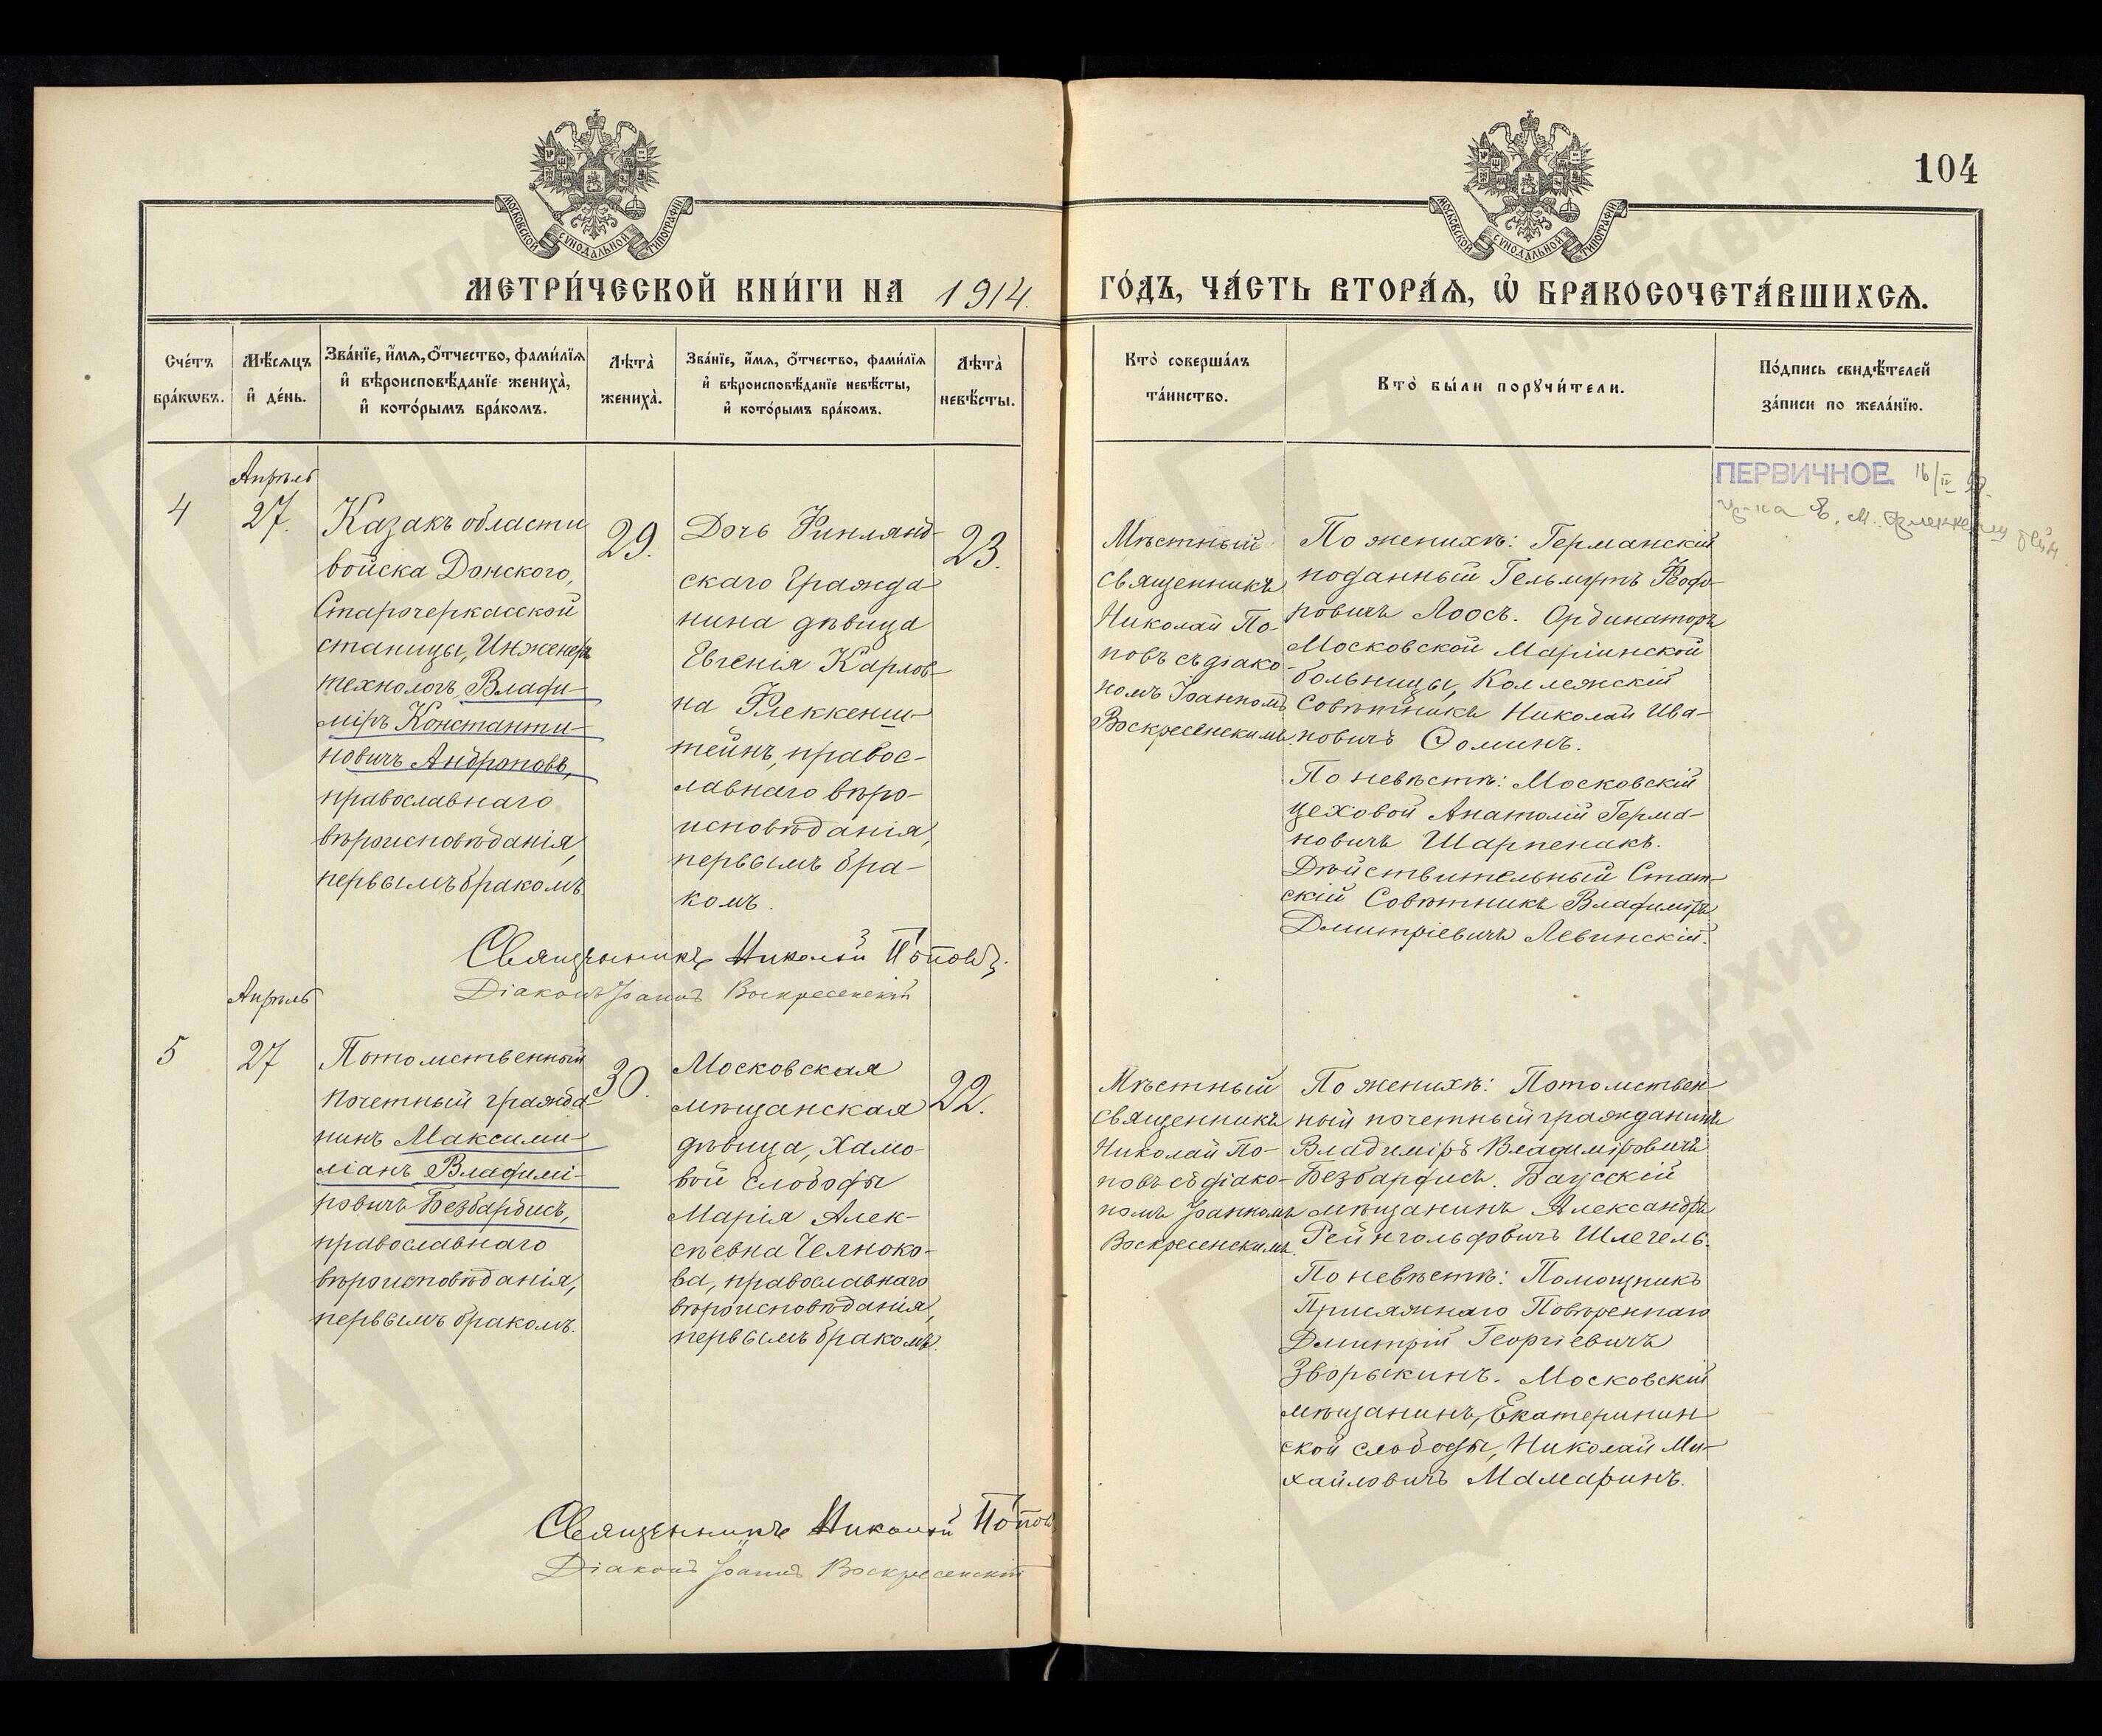 104
МОСКОВСКОЙ СѴНОДАЛЬНОЙ ТИПОГРАФІИ
МОСКОВСКОЙ СѴНОДАЛЬНОЙ ТИПОГРАФІИ
МЕТРИ́ЧЕСКОЙ КНИ́ГИ НА 1914.
ГО́ДЪ, ЧА́СТЬ ВТОРА́Ѧ, Ѽ БРАКОСОЧЕТА́ВШИХСѦ.
Сче́тъ
бра́кѡвъ.
Мѣ́сѧцъ
и҆ де́нь.
Зва́нїе, и҆́мѧ, ѻ҆́тчество, фами́лїѧ
и҆ вѣроисповѣ́данїе жениха̀,
и҆ кото́рымъ бра́комъ.
Лѣта̀
жениха̀.
Зва́нїе, и҆́мѧ, ѻ҆́тчество, фами́лїѧ
и҆ вѣроисповѣ́данїе невѣ́сты,
и҆ кото́рымъ бра́комъ.
Лѣта̀
невѣ́сты.
Кто̀ соверша́лъ
та́инство.
Кто̀ бы́ли порꙋчи́тели.
По́дпись свидѣ́телей
за́писи по жела́нїю.
4
Апрѣль
27.
Казакъ области
войска Донского,
Старочеркасской
станицы, Инженеръ
технологъ, Влади-
міръ Константи-
новичъ Андроповъ,
православнаго
вѣроисповѣданія,
первымъ бракомъ.
29.
Дочь Финлянд-
скаго Гражда
нина дѣвица
Евгенія Карлов-
на Флеккенш-
тейнъ, правос-
лавнаго вѣро-
исповѣданія,
первымъ бра-
комъ.
23.
Мѣстный
священникъ
Николай По-
повъ съ діако-
номъ Іоанномъ
Воскресенскимъ.
По женихѣ: Германскій
поданный Гельмутъ Ѳеодо-
ровичъ Лоосъ. Ординаторъ
Московской Маріинской
больницы, Коллежскій
Совѣтникъ Николай Ива-
новичъ Ѳоминъ.
По невѣстѣ: Московскій
цеховой Анатолій Герма-
новичъ Шарпенакъ.
Дѣйствительный Стат-
скій Совѣтникъ Владиміръ
Дмитріевичъ Левинскій.
ПЕРВИЧНОЕ
Священникъ Николай Поповъ.
Діаконъ Іоаннъ Воскресенскій
5
Апрѣль
27
Потомственный
почетный гражда-
нинъ Максими-
ліанъ Владимі-
ровичъ Безбардисъ,
православнаго
вѣроисповѣданія,
первымъ бракомъ.
30.
Московская
мѣщанская
дѣвица, Хамо-
вой слободы
Марія Алек-
сѣевна Челноко-
ва, православнаго
вѣроисповѣданія,
первымъ бракомъ.
22.
Мѣстный
священникъ
Николай По-
повъ съ діако-
номъ Іоанномъ
Воскресенскимъ.
По женихѣ: Потомствен
ный почетный гражданинъ
Владиміръ Владиміровичъ
Безбардисъ. Баусскій
мѣщанинъ Александръ
Рейнгольдовичъ Шлегель.
По невѣстѣ: Помощникъ
Присяжнаго Повѣреннаго
Дмитрій Георгіевичъ
Зворыкинъ. Московскій
мѣщанинъ, Екатеринин
ской слободы, Николай Ми-
хайловичъ Мамаринъ.
Священникъ Николай Поповъ
Діаконъ Іоаннъ Воскресенскій